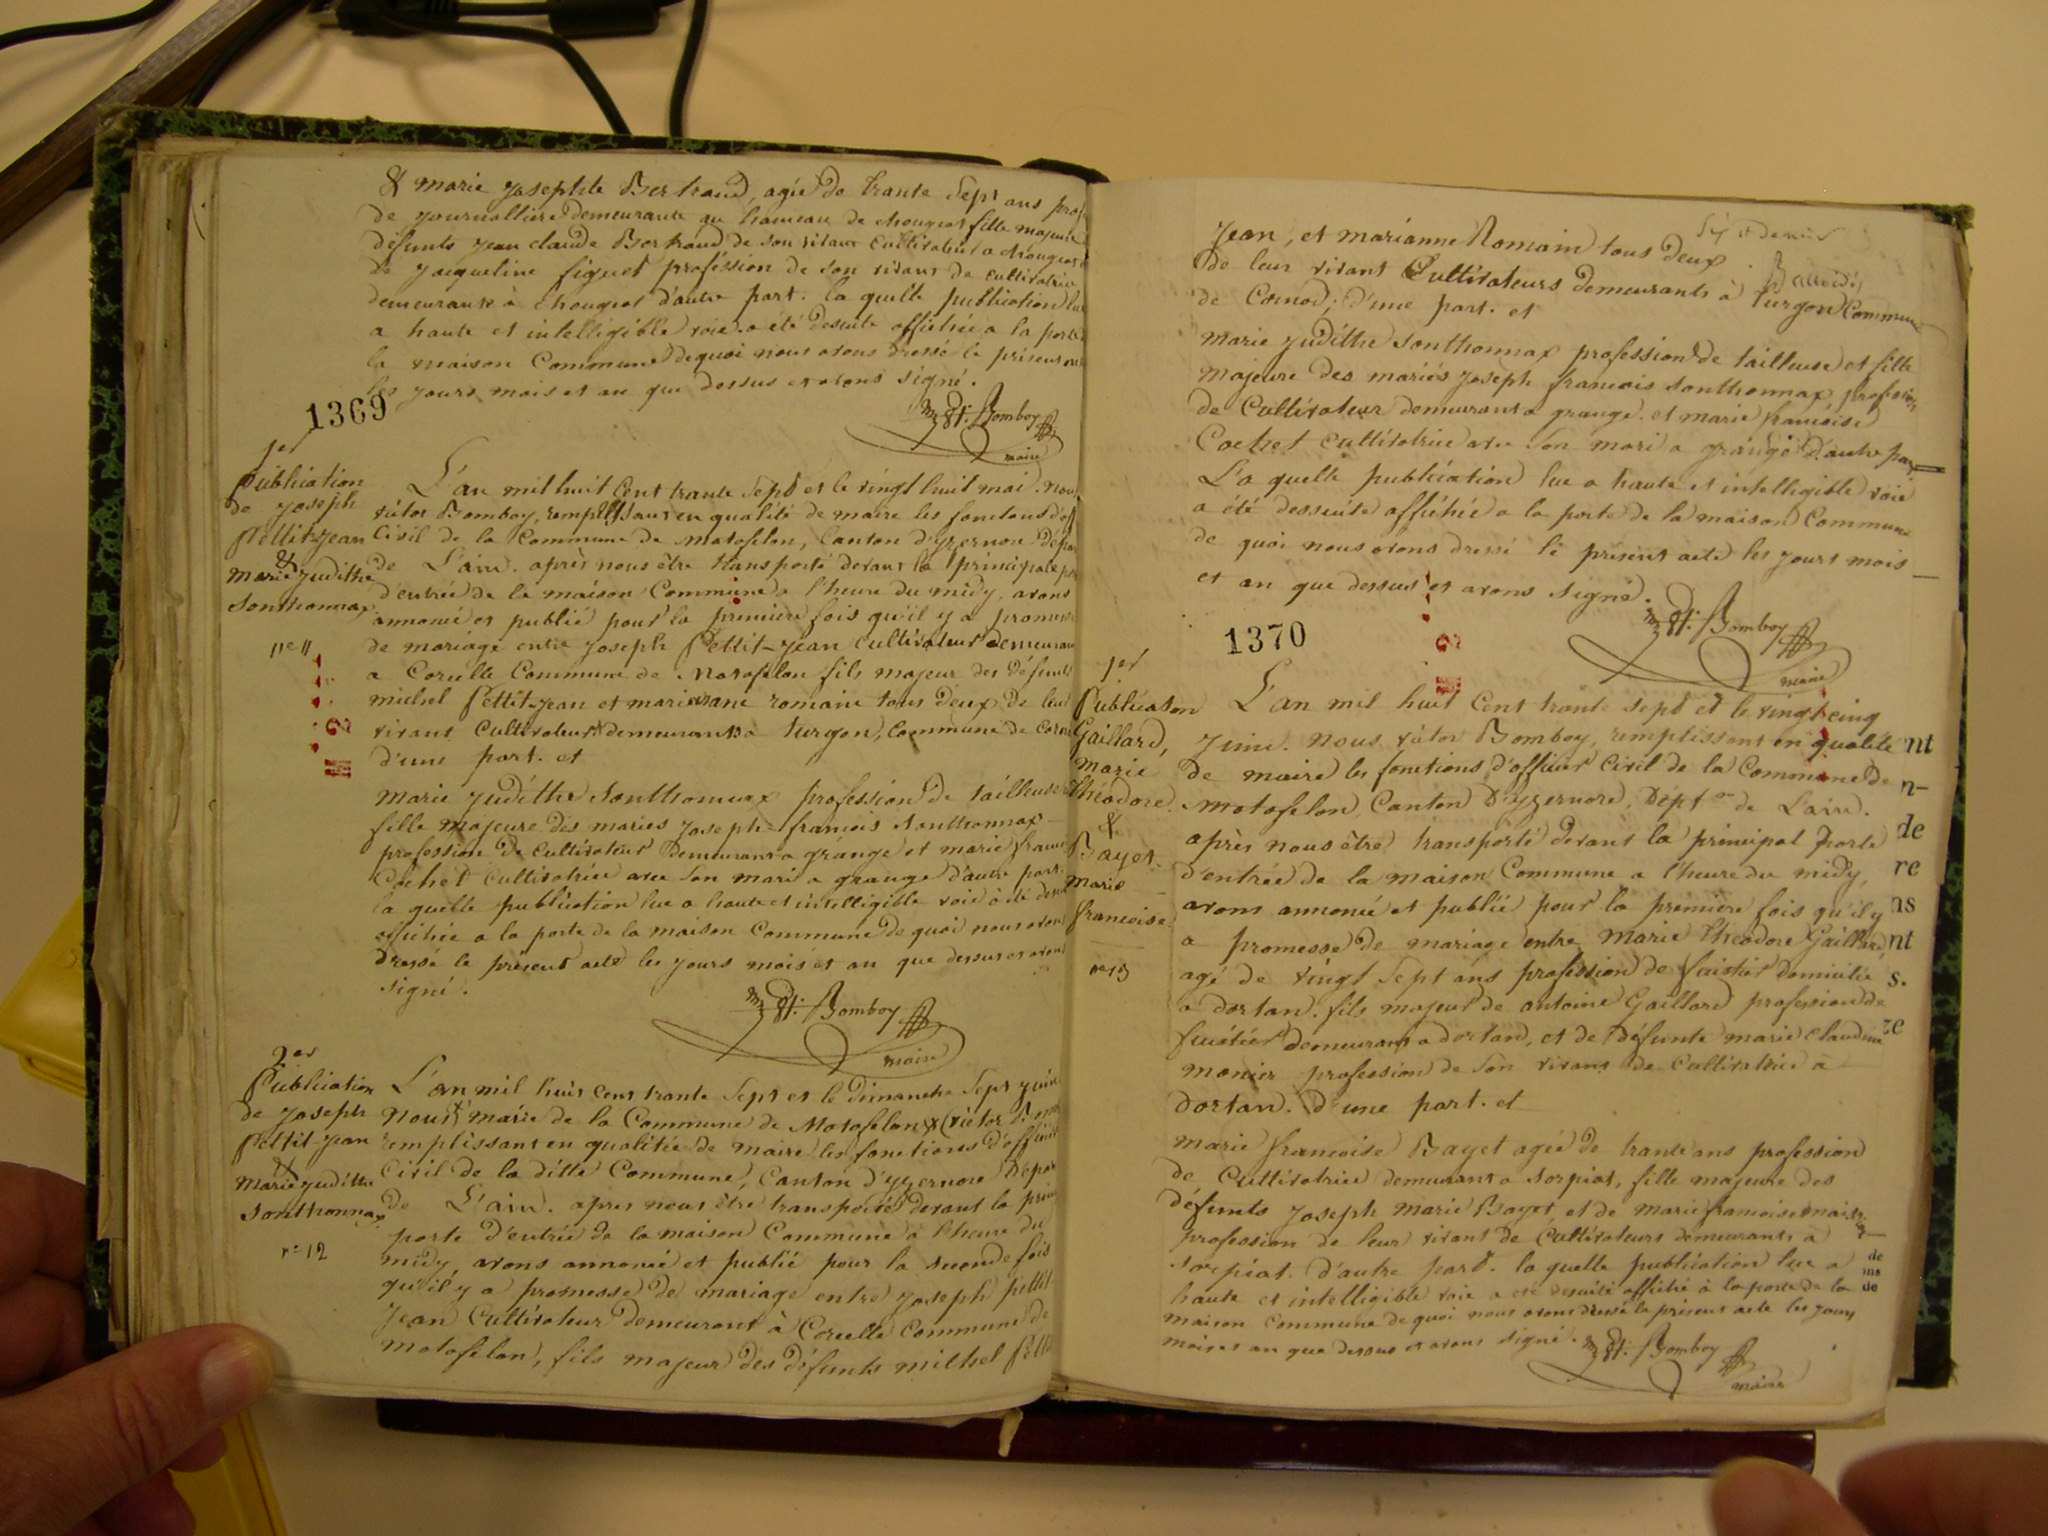 & marie Josephte Bertraud, agée de trante Sept ans prof
de journalliere demeurante au hameau de chougeat fille majeure
défunts Jean claude Bertraud de son vivant Cultivateur a chougeat
de Jacqueline figuet proféssion de son vivant de cultivatrice
demeurante à chougeat d'autre part. la quelle publication lue
a haute et intelligible voie a été desuite affichée a la porte
la maison Commune de quoi nous avons dressé le présent acte
les jours mois et an que dessus et avons signé.
1369
Bomboy
maire
1er
Publication
de Joseph
Pettit-Jean
&
marie Judithe
Sonthonnax
L'an mil huit Cent trante Sept et le vingt huit mai. nous
victor Bomboy, remplissant en qualité de maire les fonctions d'off
Civil de la Commune de Matafelon, Canton d'yzernore Dépar
de L'ain. après nous être transporté devant la principale por
d'entrée de la maison Commune a l'heure du midy, avons
annoncé et publié pour la première fois qu'il y a promesse
de mariage entre Joseph Pettit-Jean Cultivateur demeurant
a Corcelle Commune de Matafelon fils majeur des défunts
michel Pettit-Jean et marianne romain tous deux de leur
vivant Cultivateurs demeurants a turgon, Commune de Corno
d'une part. et
marie Judithe Sonthonnax profession de tailleuse
fille majeure des mariés Joseph-francois Sonthonnax
profession de Cultivateur demeurant a grange et marie francoi
Cochet Cultivatrice avec Son mari a grange d'autre part.
la quelle publication lue a haute et intelligible voie a été desui
affichée a la porte de la maison Commune de quoi nous avons
dressé le présent acte les jours mois et an que dessus et avons
signé.
Bomboy
maire
2er
Publication
de Joseph
Pettit-Jean
&
marie Judithe
Sonthonnax
no 12
L'an mil huit Cent trante Sept et le dimanche Sept juin
Nous maire de la Commune de Matafelon (victor Bom
remplissant en qualitée de maire les fonctions d'officier
Civil de la ditte Commune, Canton d'yzernore Depar
de L'ain. apres nous être transporté devant la prin
porte d'entrée de la maison Commune à l'heure du
midy, avons annoncé et publié pour la seconde fois
qu'il y a promesse de mariage entre Joseph pettit
Jean Cultivateur demeurant à Corcelle Commune de
matafelon, fils majeur des défunts michel Pettit
Jean, et marianne Romain tous deux
de leur vivant Cultivateurs demeurants à turgon Commune
de Cornod, d'une part. et
marie Judithe Sonthonnax profession de tailleuse et fille
majeure des mariés Joseph francois Sonthonnax, profession
de Cultivateur demeurant a grange. et marie francoise
Cochet cultivatrice avec Son mari a grange d'autre part
La quelle publication lue a haute et intelligible voie
a été dessuite affichée a la porte de la maison Commune
de quoi nous avons dressé le présent acte les jours mois
et an que dessus et avons signé.
Bomboy
maire
1370
1er
Publication
Gaillard,
marie
théodore
&
Bayet
marie
francoise
no 13
L'an mil huit Cent trante sept et le vingt cinq
Juin. Nous victor Bomboy, remplissant en qualité
de maire les fonctions d'officier Civil de la Commune de
Matafelon, Canton D'yzernore, Dépt de L'ain.
après nous être transporté devant la principal Porte
d'entrée de la maison Commune a l'heure du midy,
avons annoncé et publié pour la première fois qu'il y
a promesse de mariage entre marie théodore Gaillard
agé de vingt Sept ans profession de fuistier domicilié
a dortan. fils majeur de antoine Gaillard profession de
fuistier demeurant a dortand, et de défunte marie Claudine
monier profession de Son vivant de Cultivatrice à
dortan. d'une part. et
marie francoise Bayet agée de trante ans profession
de Cultivatrice demeurant a Sorpiat, fille majeure des
défunts Joseph marie Bayet et de marie francoise
profession de leur vivant de Cultivateurs demeurants à
Sorpiat. d'autre part. la quelle publication lue a
haute et intelligible voie a été desuite affiché à la porte de la
maison Commune de quoi nous avons dressé le présent acte les jours
mois et an que dessus et avons signé.
Bomboy
maire
nt
n-
de
re
as
nt
s.
ze
de
ms
de